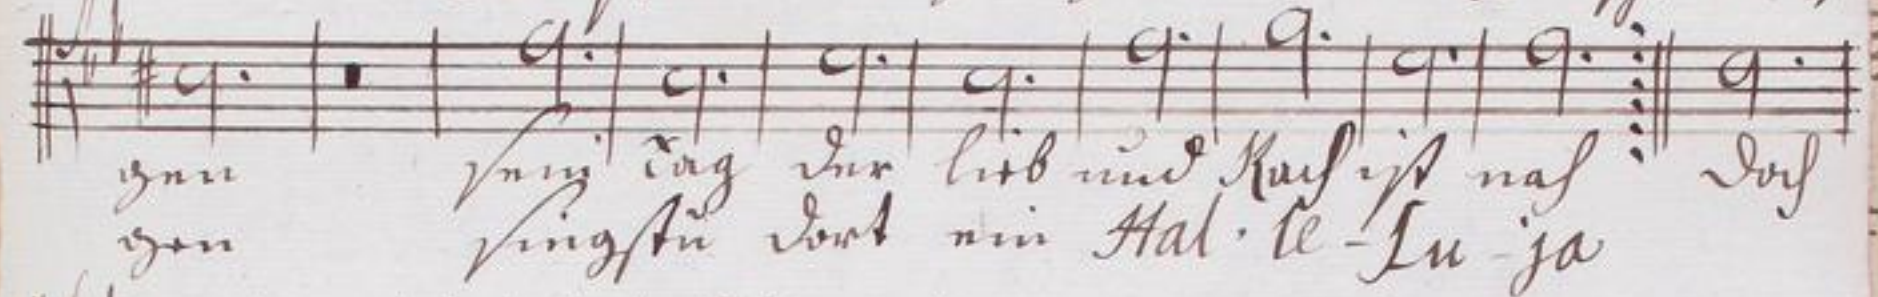 gen sein Tag der lieb und Rach ist nah Doch
gen singstu dort ein Hal-le-Lu-ja